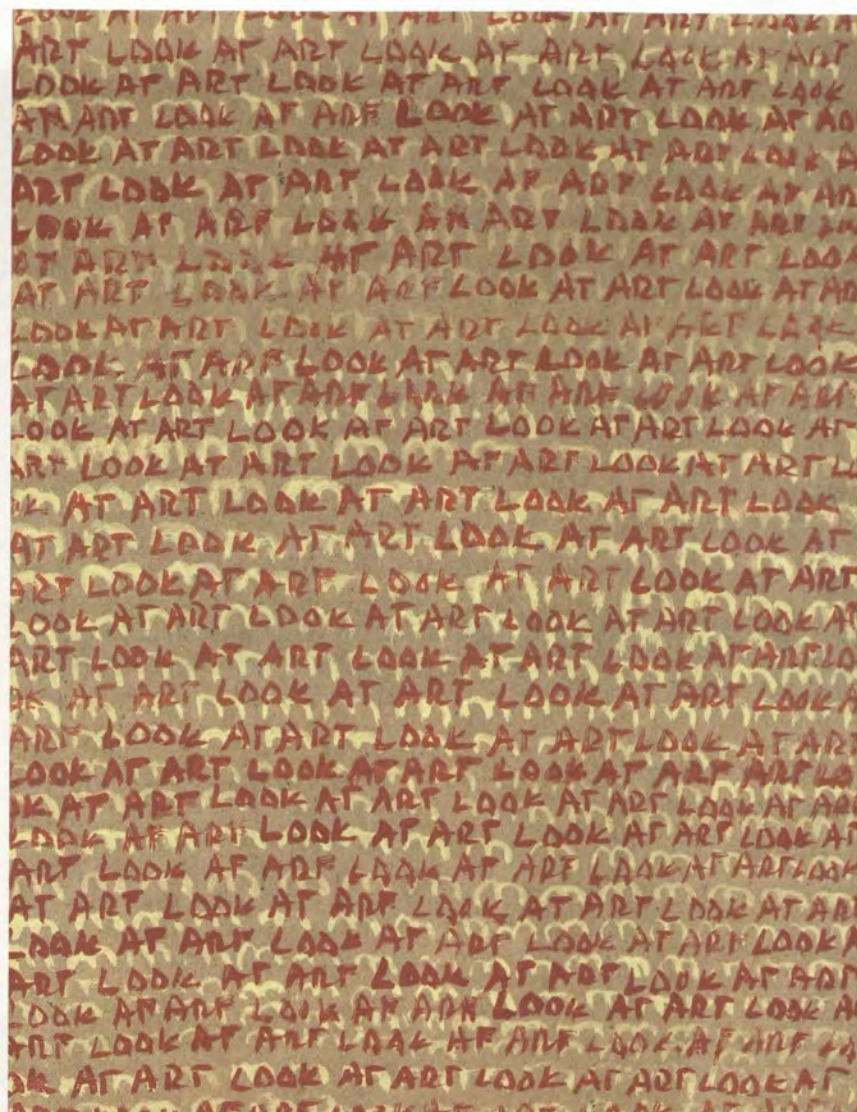 LOOK AT ART LOOK AT ART LOOK
ART LOOK AT ART LOOK AT ART LOOK AT ART
LOOK AT ART LOOK AT ART LOOK AT ART LOOK
AT ART LOOK AT ART LOOK AT ART LOOK AT
LOOK AT ART LOOK AT ART LOOK AT ART LOOK
ART LOOK AT ART LOOK AT ART LOOK AT
LOOK AT ART LOOK AT ART LOOK AT ART
AT ART LOOK AT ART LOOK AT ART LOOK
AT ART LOOK AT ART LOOK AT ART LOOK AT
LOOK AT ART LOOK AT ART LOOK AT ART LOOK
LOOK AT ART LOOK AT ART LOOK AT ART LOOK
AT ART LOOK AT ART LOOK AT ART LOOK AT ART
LOOK AT ART LOOK AT ART LOOK AT ART LOOK AT
ART LOOK AT ART LOOK AT ART LOOK AT ART
AT ART LOOK AT ART LOOK AT ART LOOK
AT ART LOOK AT ART LOOK AT ART LOOK AT
ART LOOK AT ART LOOK AT ART LOOK AT ART
LOOK AT ART LOOK AT ART LOOK AT ART LOOK AT
ART LOOK AT ART LOOK AT ART LOOK AT ART
AT ART LOOK AT ART LOOK AT ART LOOK
ART LOOK AT ART LOOK AT ART LOOK AT ART
LOOK AT ART LOOK AT ART LOOK AT ART ART
AT ART LOOK AT ART LOOK AT ART LOOK AT
LOOK AT ART LOOK AT ART LOOK AT ART LOOK AT
ART LOOK AT ART LOOK AT ART LOOK AT ART LOOK
AT ART LOOK AT ART LOOK AT ART LOOK AT
LOOK AT ART LOOK AT ART LOOK AT ART LOOK
ART LOOK AT ART LOOK AT ART LOOK AT ART
LOOK AT ART LOOK AT ART LOOK AT ART LOOK
ART LOOK AT ART LOOK AT ART LOOK AT ART
AT ART LOOK AT ART LOOK AT ART LOOK AT